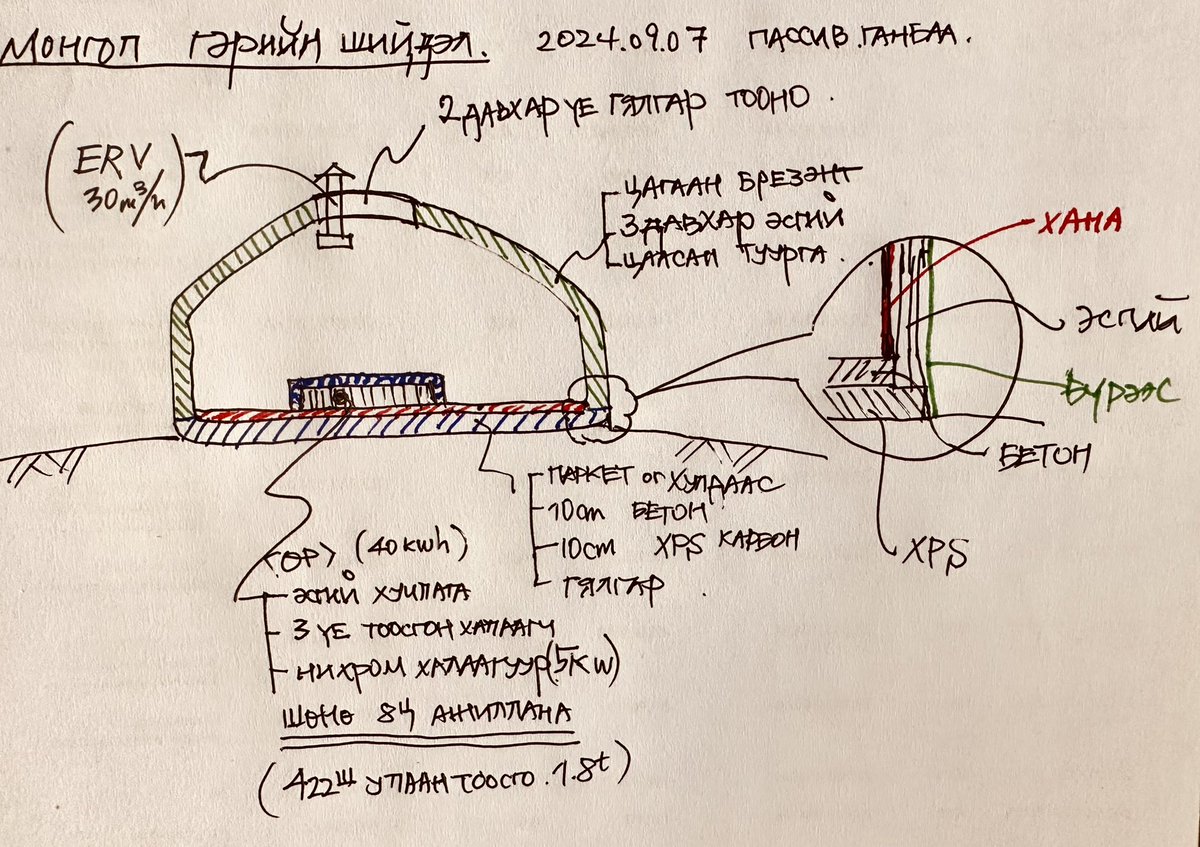 МОНГОЛ ГЭРИЙН ШИЙДЭЛ. 2024.09.07 ПАССИВ.ГАНБАА.
2 ДАВХАР ҮЕ ГЯЛГАР ТООНО.
(ERV
30m³/h)
ЦАГААН БРЕЗЭНТ
3 ДАВХАР ЭСГИЙ
ЦААСАН ТУУРГА.
ХАНА
ЭСГИЙ
БҮРЭЭС
БЕТОН
XPS
ПАРКЕТ or ХУЛДААС
10cm БЕТОН
10cm XPS КАРБОН
ГЯЛГАР.
<ОР> (40kwh)
ЭСГИЙ ХУЛАГА
3 ҮЕ ТООСГОН ХАЛААГЧ
НИХРОМ ХАЛААГУУР (5KW)
ШӨНӨ 8Ц АЖИЛЛАНА
(422ш УЛААН ТООСГО. 1.8t)